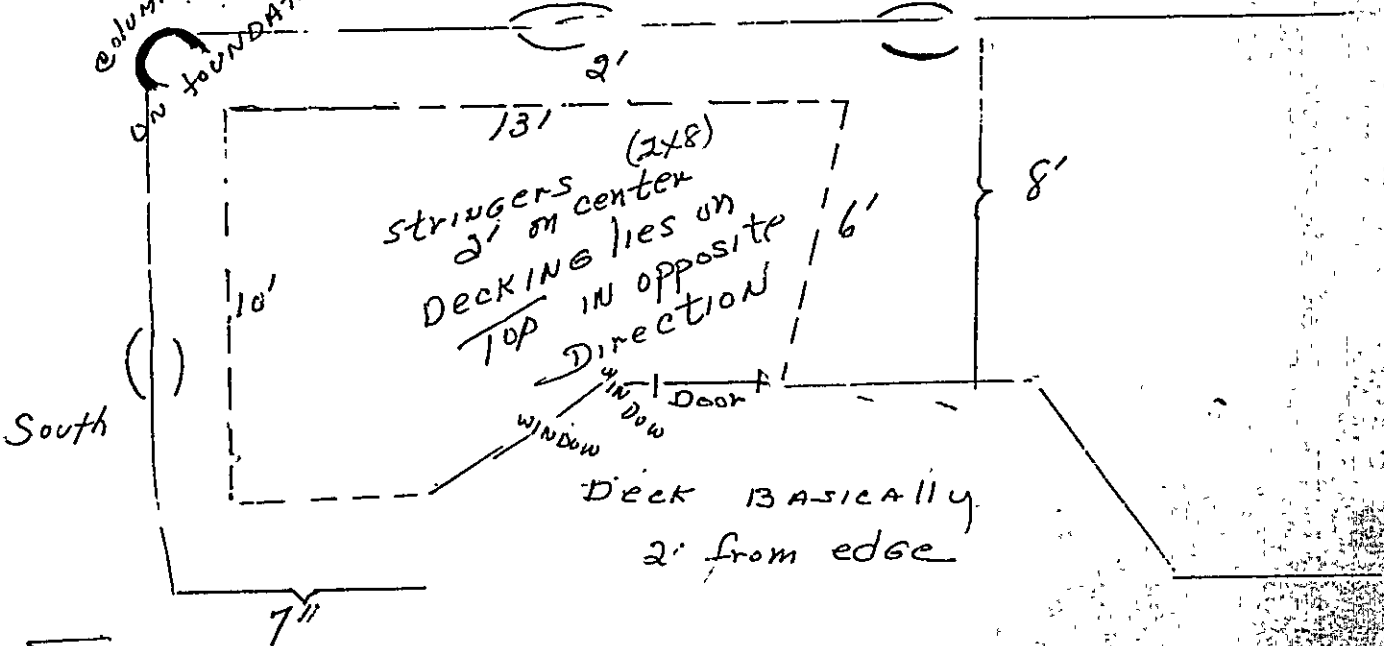 ON
2'
13'
(2x8)
stringers
2' on center
DECKING lies on
TOP IN opposite
Direction
10'
6'
8'
South
WINDOW
WINDOW
Door
Deck BASICAlly
2' from edge
7"